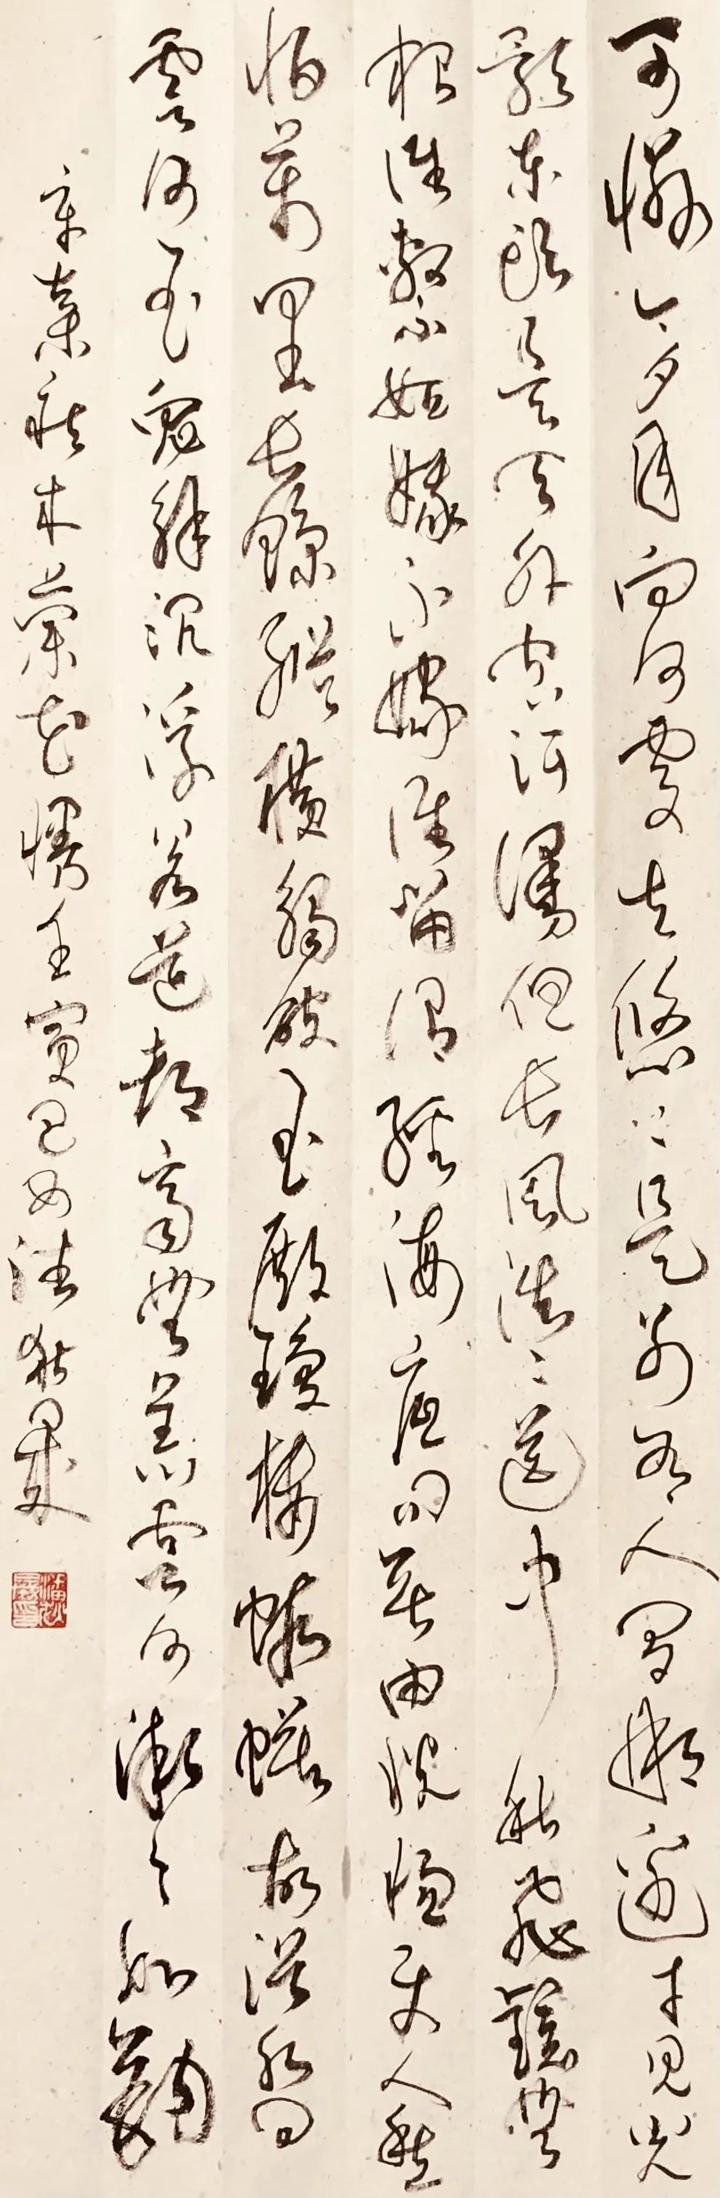 可憐今夕月向何處去悠悠是別有人間那邊才見光
影東頭是天外空汗漫但長風浩浩送中秋飛鏡無
根誰繫姮娥不嫁誰留謂經海底問無由恍惚使人愁
怕萬里長鯨縱橫觸破玉殿瓊樓蝦蟆故浴水問
雲何玉兔解沉浮若道都齊無恙雲何漸漸如鉤
辛棄疾木蘭花慢壬寅